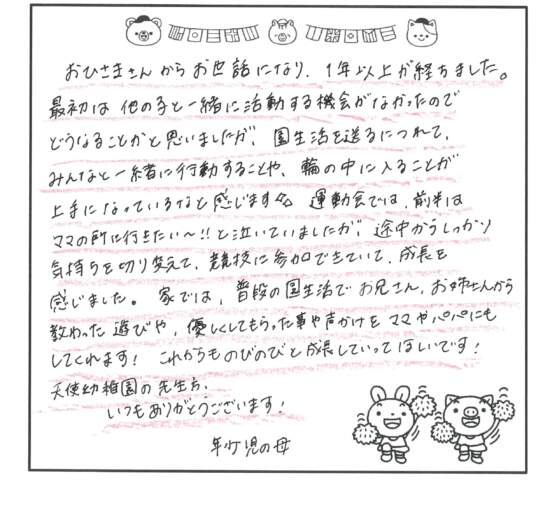 おひさまさんからお世話になり、1年以上が経ちました。
最初は他の子と一緒に活動する機会がなかったので
どうなることかと思いましたが、園生活を送るにつれて、
みんなと一緒に行動することや、輪の中に入ることが
上手になっているなと感じます☆ 運動会では、前半は
ママの所に行きたい〜!!と泣いていましたが、途中からしっかり
気持ちを切り変えて、競技に参加できていて、成長を
感じました。家では、普段の園生活でお兄さん、お姉さんから
教わった遊びや、優しくしてもらった事や声かけをママやパパにも
してくれます! これからものびのびと成長していってほしいです!
天使幼稚園の先生方、
いつもありがとうございます!
年少児の母